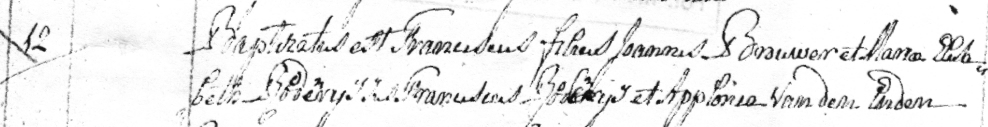 12 Baptizatus est Franciscus filius Joannis Brouwer et Maria Elisa-
beth Godérÿs sus Franciscus Goderÿs et Applonia van den Enden